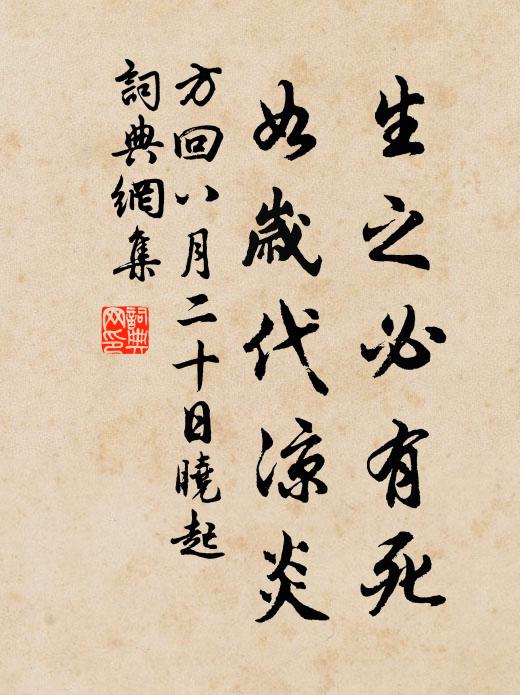 生之必有死
如歲代凉炎
方回八月二十日曉起
詞典網集
詞典网印